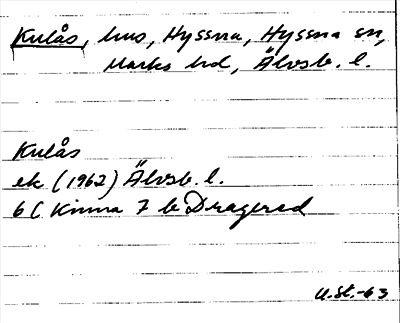 Kulås, hus, Hyssna, Hyssna sn,
Marks hd, Älvsb. l.
Kulås
ek (1962) Älvsb. l.
6 C Kinna 7 b Dragered
U.St.-63